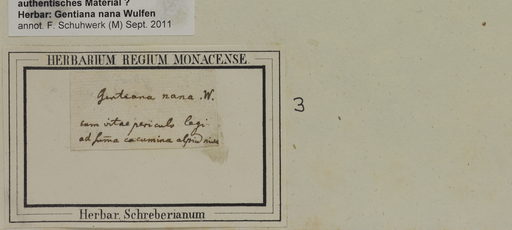 authentisches Material ?
Herbar: Gentiana nana Wulfen
annot. F. Schuhwerk (M) Sept. 2011
HERBARIUM REGIUM MONACENSE.
Gentiana nana .W.
cum vitae periculo legi
ad suma cacumina alpiu
3
Herbar. Schreberianum